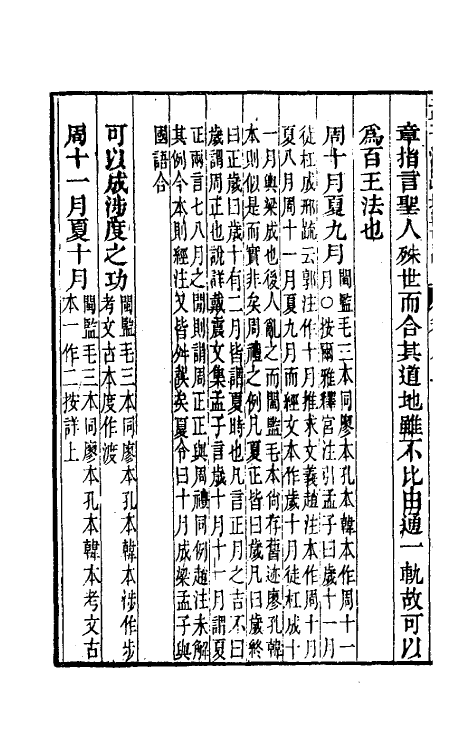 章指言聖人殊世而合其道地雖不比由通一軌故可以
爲百王法也
周十月夏九月
閩監毛三本同廖本孔本韓本作周十一
月○按爾雅釋宮注引孟子曰歲十一月
徒杠成邢疏云郭注作十月推求文義趙注本作周十月
夏八月周十一月夏九月而經文本作歲十月徒杠成十
一月輿梁成也後人亂之而閩監毛本尙存舊迹廖孔韓
本則似是而實非矣周禮之例凡夏正皆曰歲凡曰歲終
曰正歲曰歲十有二月皆謂夏時也凡言正月之吉不曰
歲謂周正也說詳戴震文集孟子言歲十月十一月謂夏
正兩言七八月之閒則謂周正正與周禮同例趙注未解
其例今本則經注又皆舛誤矣夏令曰十月成梁孟子與
國語合
可以成涉度之功
閩監毛三本同廖本孔本韓本涉作步
考文古本度作渡
周十一月夏十月
閩監毛三本同廖本孔本韓本考文古
本一作二按詳上